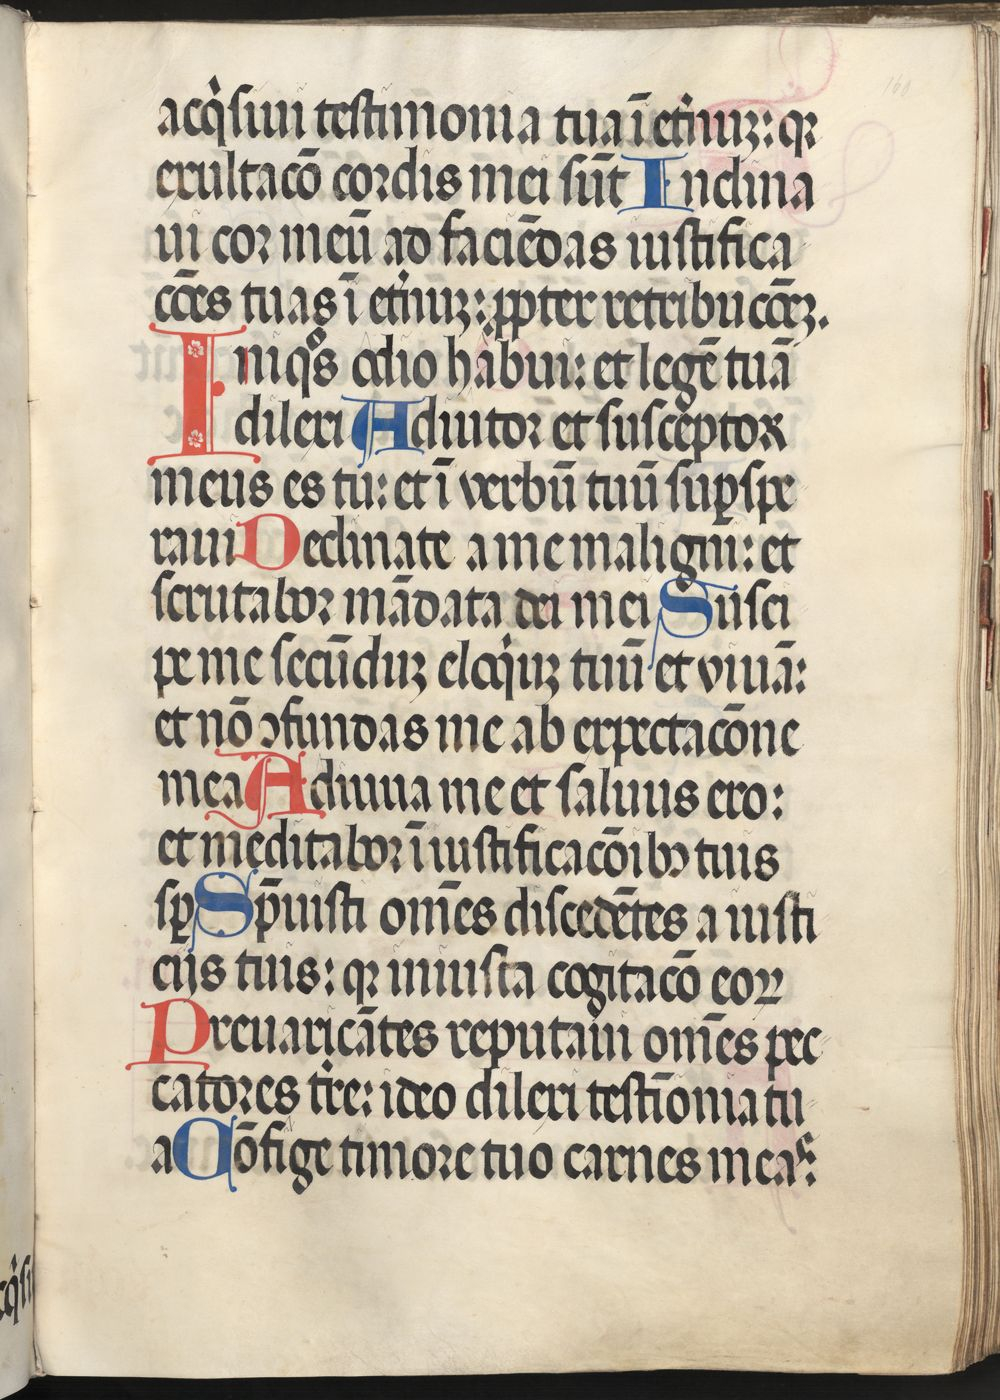 acq̇siui testimonia tua ī eṫnuꝫ: qꝛ
exultacō cordis mei sūt Inclina
ui cor meū ad faciēdas iustifica
cōes tuas ī eṫnuꝫ: ꝓpter retribucōeꝫ.
Iniqͦs odio habui: et legē tuā
dilexi Adiutor et susceptor
meus es tu: et ī verbū tuū suꝑspe
raui Declinate a me maligni: et
scrutabor mādata dei mei Susci
pe me secūduꝫ eloq̇uꝫ tuū et viuā:
et nō ꝯfundas me ab expectacōne
mea Adiuua me et saluus ero:
et meditabor ī iustificacōibꝫ tuis
sꝑ Sp̄uisti om̄es discedētes a iusti
cijs tuis: qꝛ iniusta cogitacō eoꝝ
Preuaricātes reputaui om̄es pec
catores ṫre: ideo dilexi testīonia tu
a Cōfige timore tuo carnes meas:
160